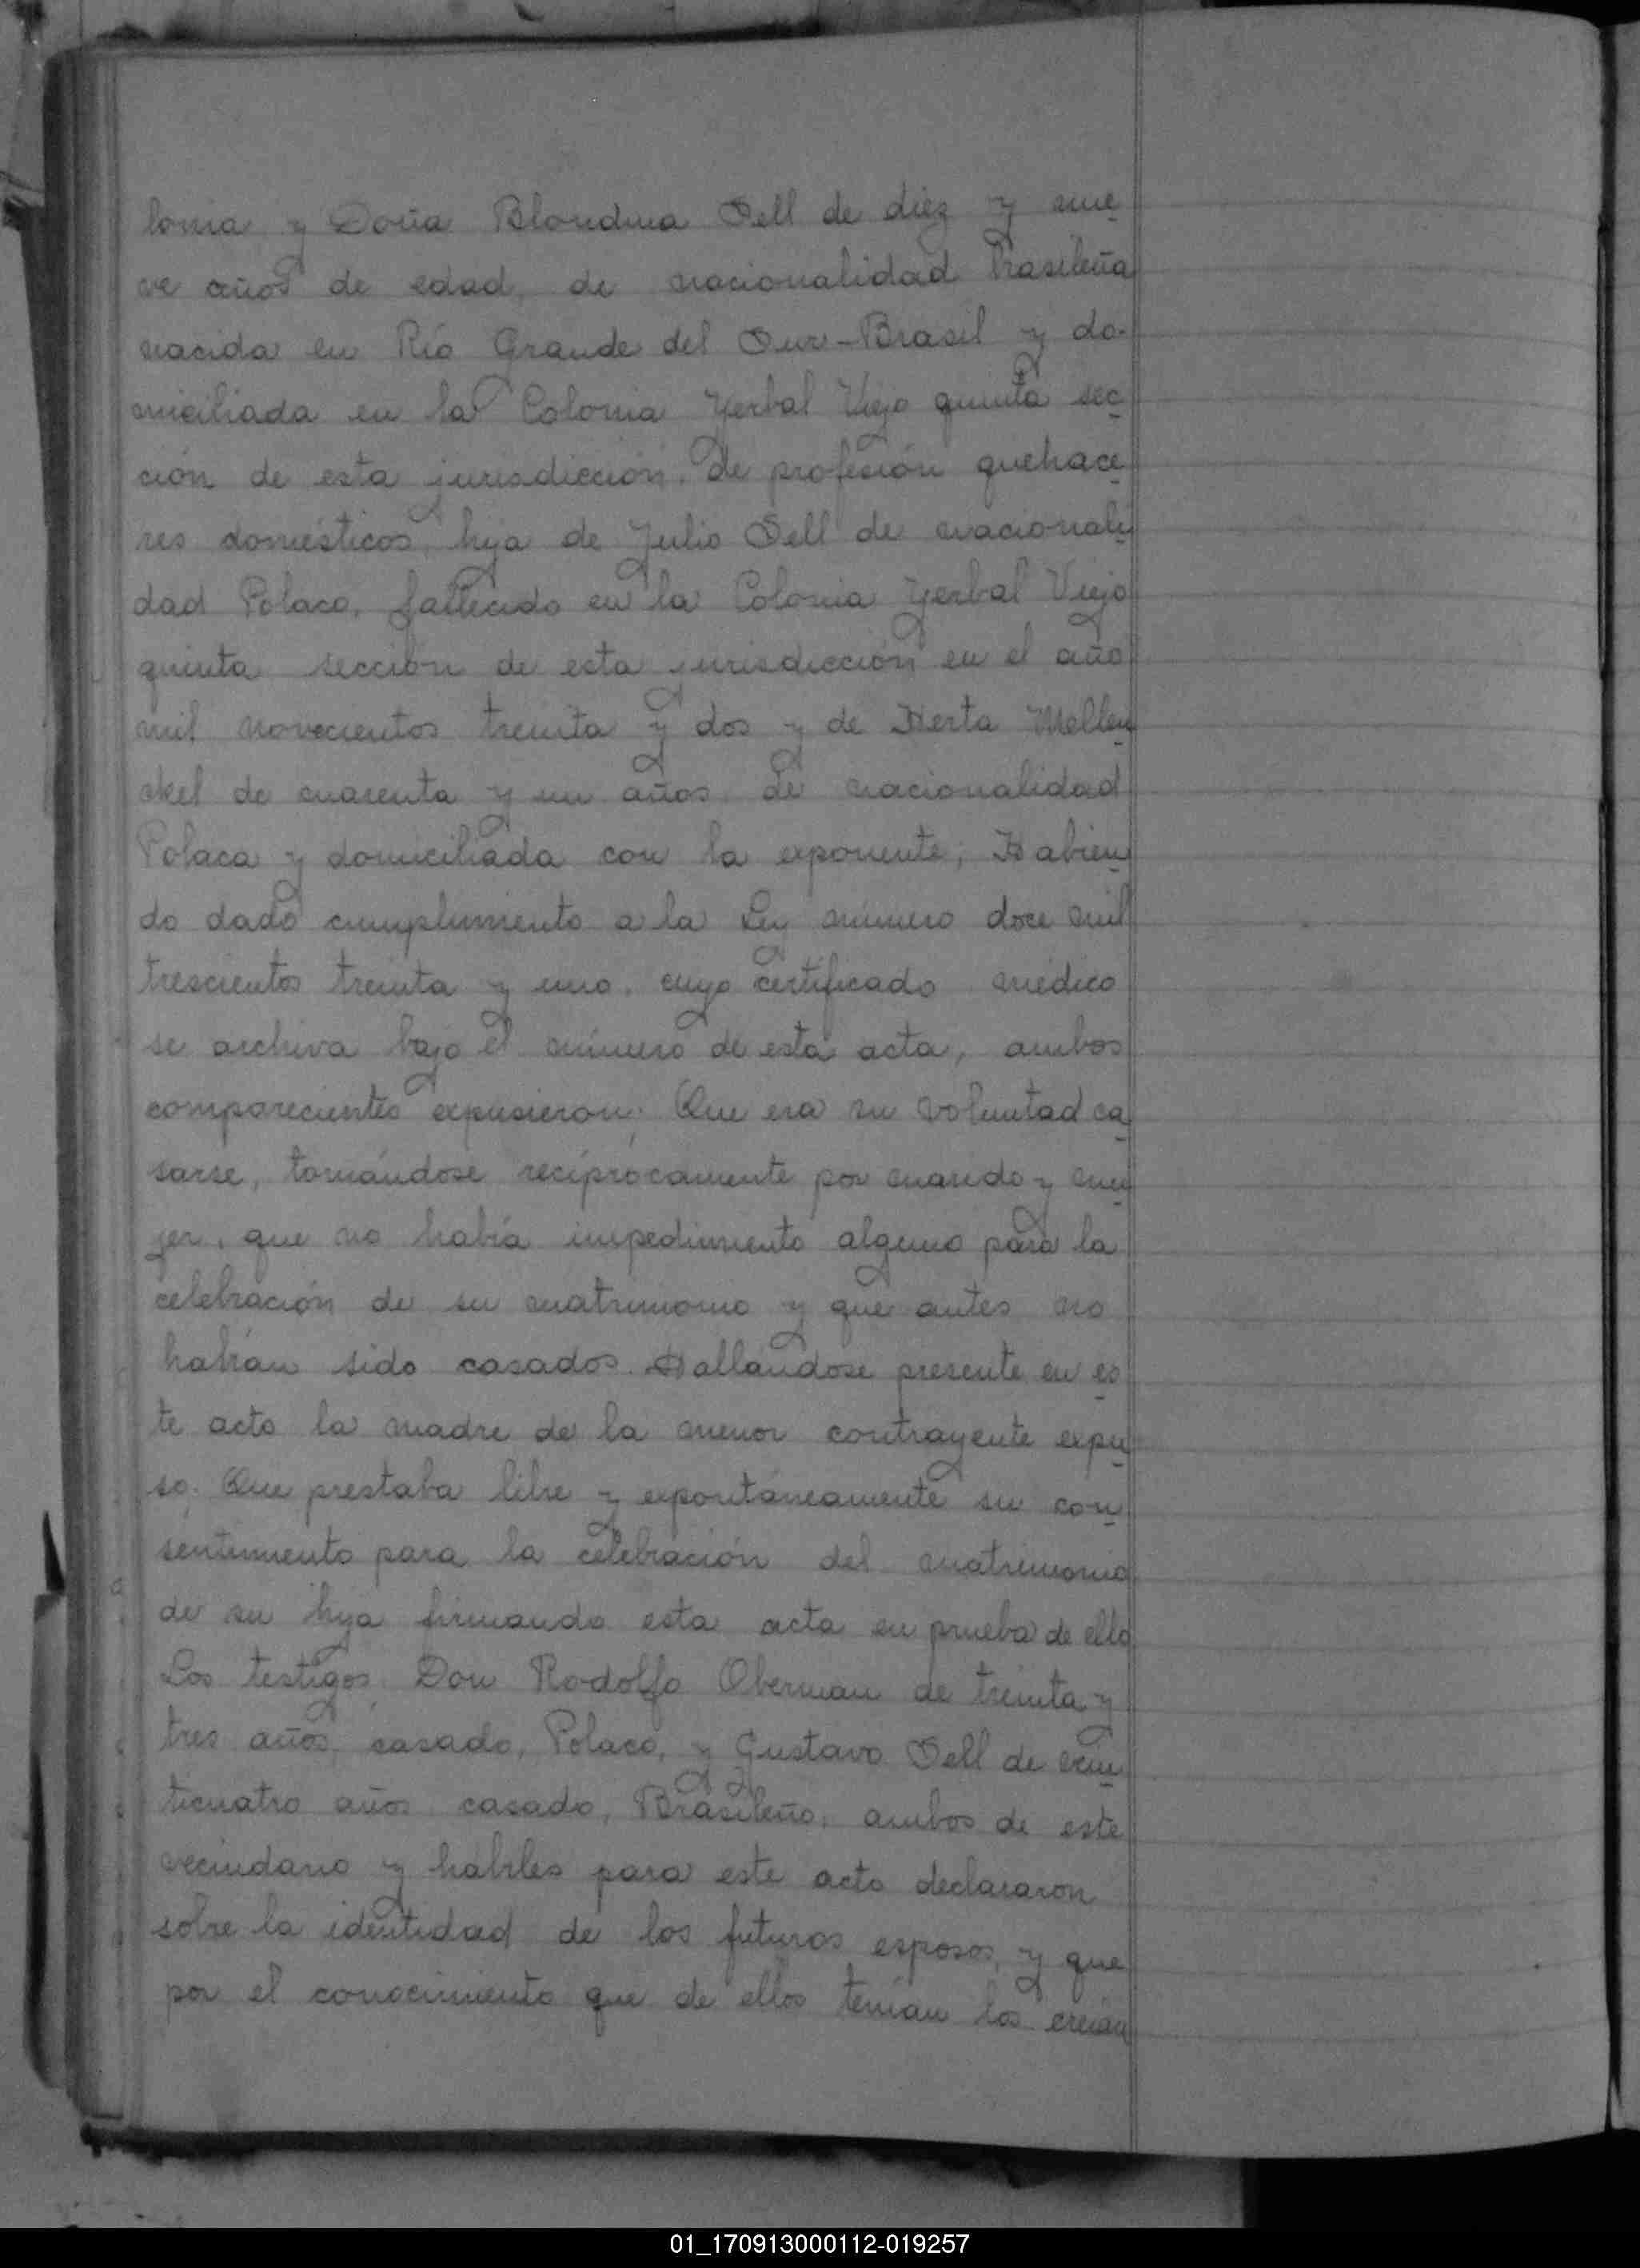 lonia y Doña Blondina Sell de diez y nue
ve años de edad, de nacionalidad Brasileña
nacida en Río Grande del Sur-Brasil y do-
miciliada en la Colonia Yerbal Viejo quinta sec
ción de esta jurisdicción, de profesión quehace
res domésticos, hija de Julio Sell de nacionali
dad Polaco, fallecido en la Colonia Yerbal Viejo
quinta sección de esta jurisdicción en el año
mil novecientos treinta y dos y de Herta Mellen
ckel de cuarenta y un años de nacionalidad
Polaca y domiciliada con la exponente; Habien
do dado cumplimiento a la Ley número doce mil
trescientos treinta y uno, cuyo certificado médico
se archiva bajo el número de esta acta, ambos
comparecientes expusieron: Que era su voluntad ca
sarse, tomándose recíprocamente por marido y mu
jer, que no había impedimento alguno para la
celebración de su matrimonio y que antes no
habían sido casados. Hallándose presente en es
te acto la madre de la menor contrayente expu
so: Que prestaba libre y expontáneamente su con
sentimiento para la celebración del matrimonio
de su hija firmando esta acta en prueba de ello
Los testigos, Don Rodolfo Oberman de treinta y
tres años, casado, Polaco, y Gustavo Sell de vein
ticuatro años casado, Brasileño, ambos de este
vecindario y hábiles para este acto declararon
sobre la identidad de los futuros esposos, y que
por el conocimiento que de ellos tenían los creían
01_170913000112-019257